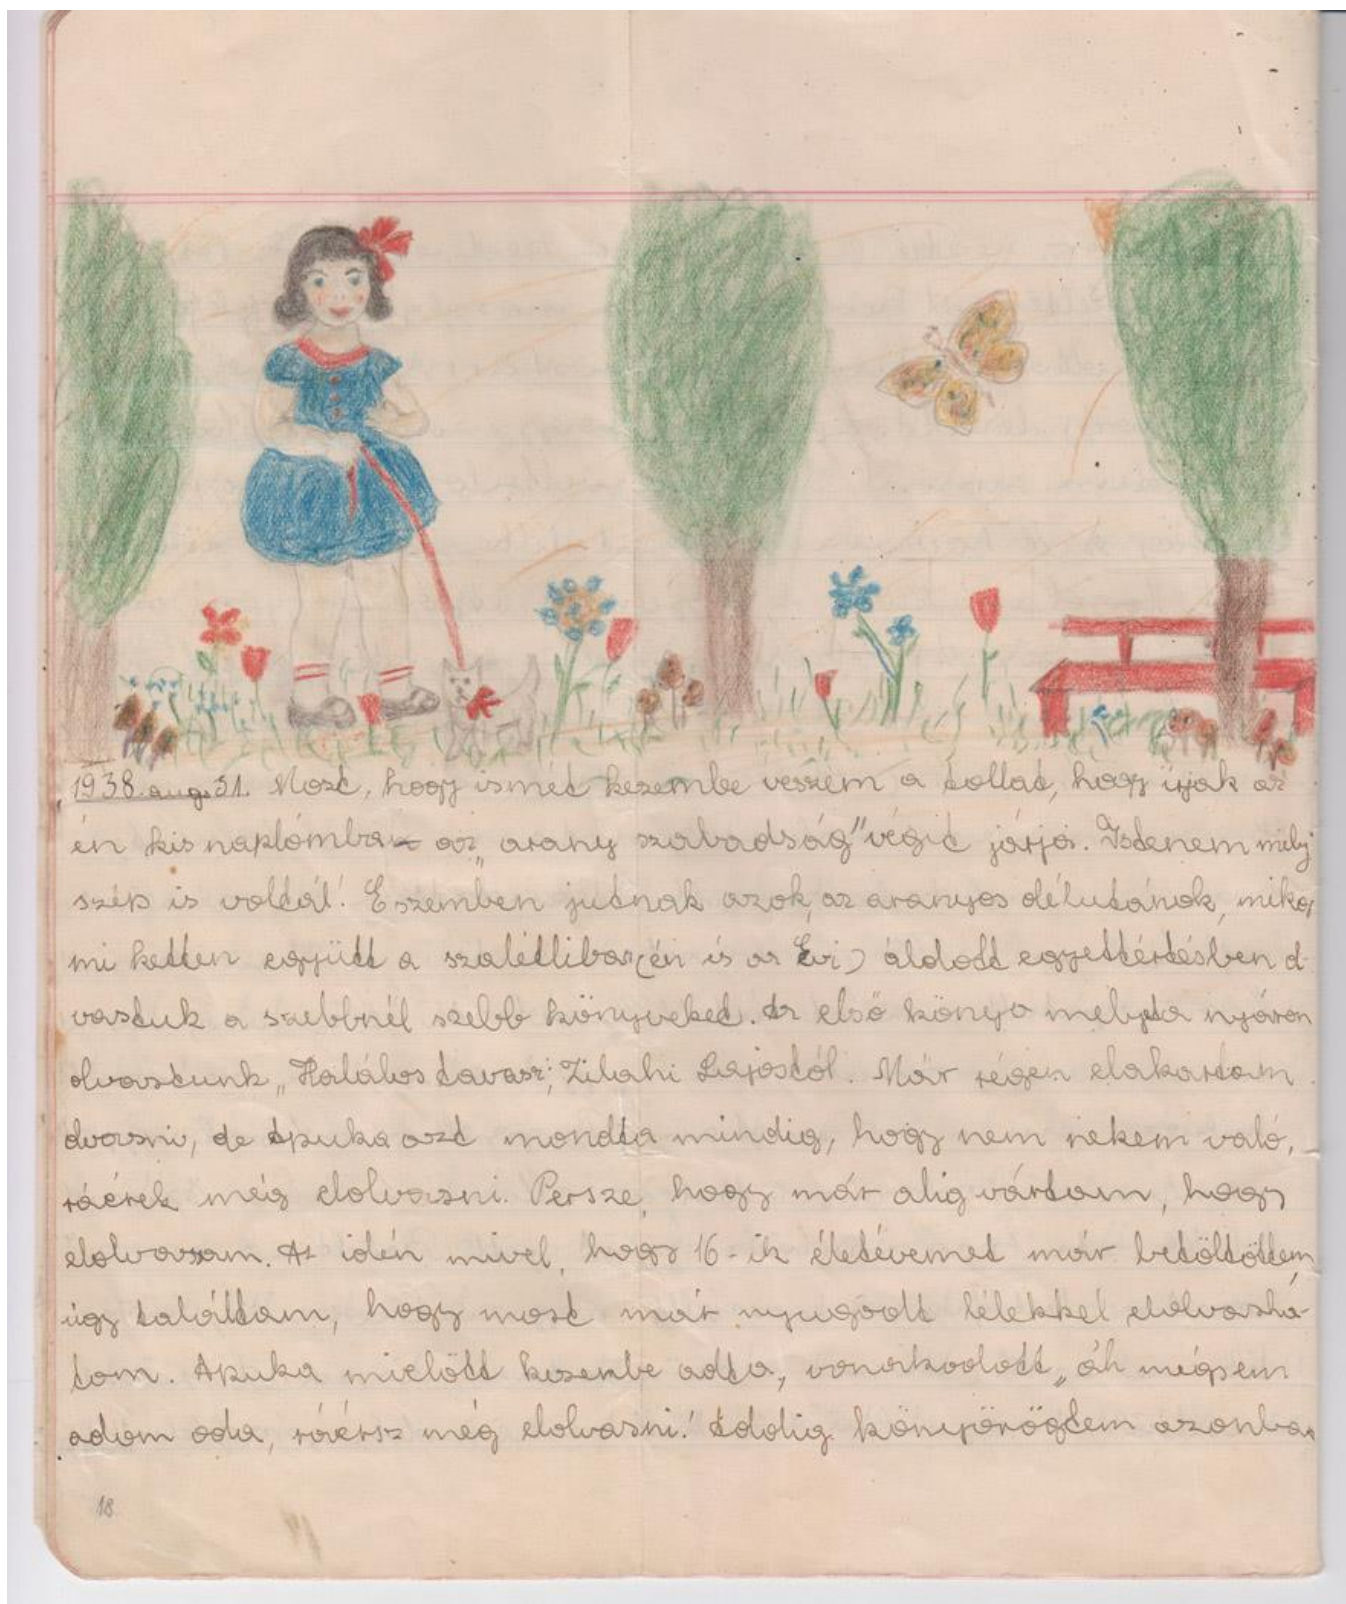 1938. aug. 31. Most, hogy ismét kezembe veszem a tollat, hogy irjak az
én kis naplómba az „arany szabadság" végit járja. Istenem mily
szép is voltál! Eszemben jutnak azok, az aranyos délutánok, mikor
mi ketten együtt a szalétliban (én és az Évi) áldott egyettértésben ol-
vastuk a szebbnél szebb könyveket. Az első könyv melyet a nyáron
olvastunk „Halálos tavasz", Zilahi Lajostól. Már régen elakartam
olvasni, de Apuka azt mondta mindig, hogy nem nekem való,
ráérek még elolvasni. Persze, hogy már alig vártam, hogy
elolvassam. Az idén mivel, hogy 16-ik életévemet már betöltöttem,
úgy találtam, hogy most már nyugodt lélekkel elolvasha-
tom. Apuka mielőtt kezembe adta, vonakodott „áh mégsem
adom oda, ráérsz még elolvasni! Addig könyörögtem azonban
18.